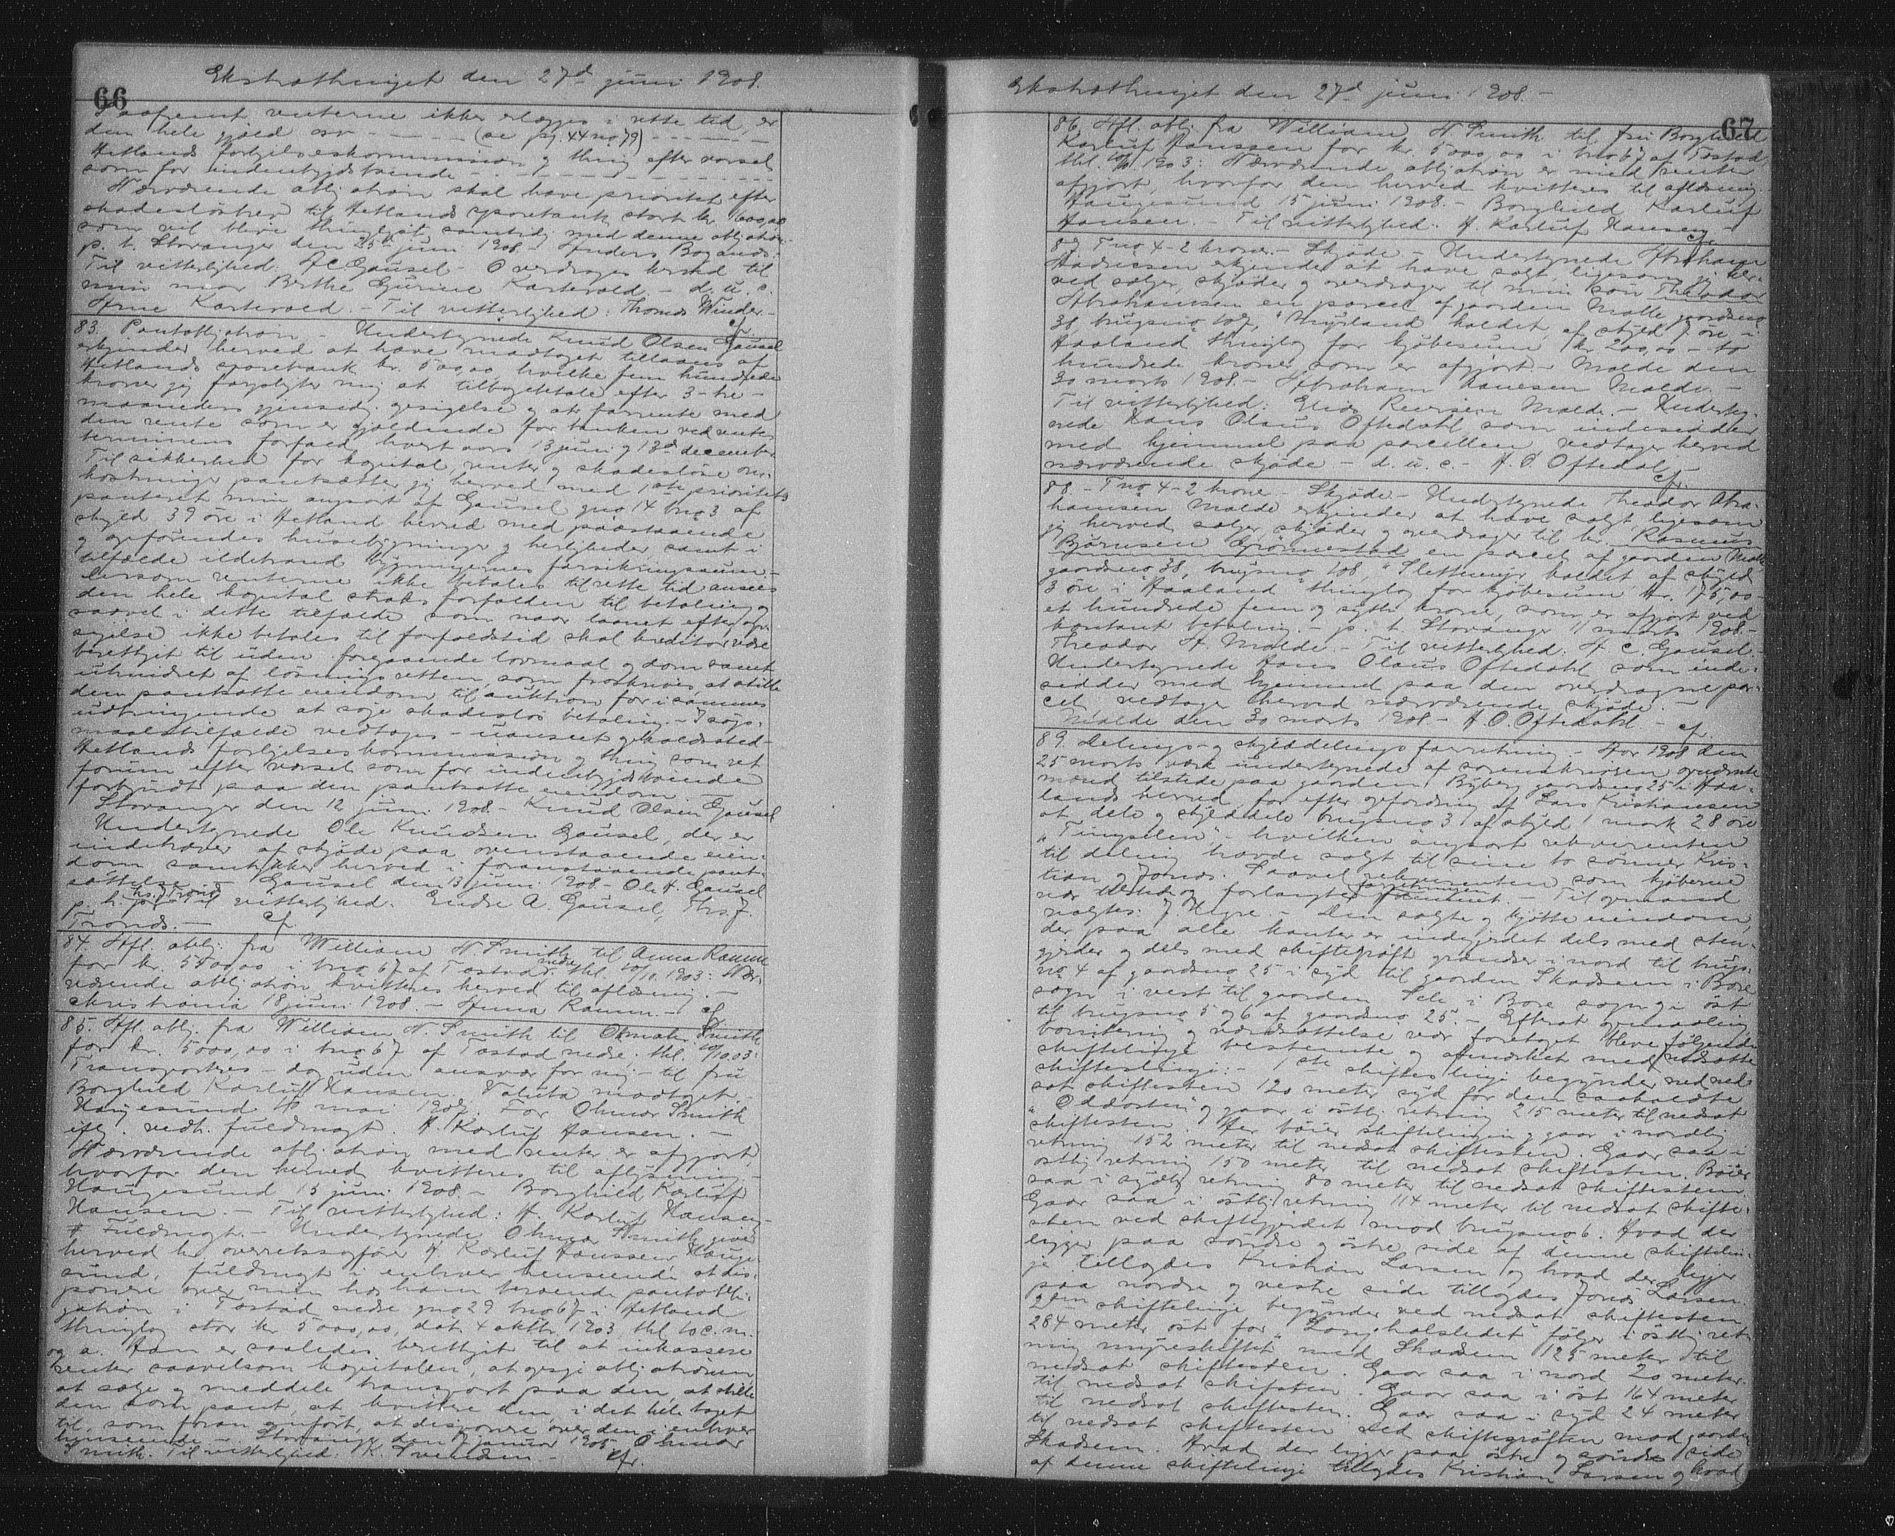 66
Ekstrathinget den 27d juni 1908.
Saafremt renterne ikke erlægges i rette tid, er
den hele gjæld osv - - - - (se pag 44 no 79) - - - -
Hetlands forligelseskommission og thing efter varsel
som for indenbygdsboende - - - - - -
Nærværende obligation skal have prioritet efter
skadesløsbrev til Hetlands sparebank stort kr. 600,00
som vil blive thinglyst samtidig med denne obligation.
p. t. Stavanger den 25d juni 1908 - Anders Boganes.
Til vitterlighed. A C Gausel - Overdrages herved til
min mor Berthe Gurine Kartevold - d. u. s.
Arne Kartevold. - Til vitterlighed: Thomas Winder -
cfr.
83. Pantobligation - Undertegnede Knud Olsen Gausel
erkjender herved at have modtaget tillaans af
Hetlands sparebank kr. 500,00 hvilke fem hundrede
kroner jeg forpligter mig at tilbagebetale efter 3 - tre -
maaneders gjensid. opsigelse og at forrente med
den rente som er gjældende for banken ved rente
terminens forfald hvert aars 13 juni og 13de december.
Til sikkerhed for kapital, renter og skadesløse om-
kostninger pantsætter jeg herved med 1ste prioritets
panteret min anpart af Gausel gno 14 bno 3 af
skyld 39 øre i Hetland herred med paastaaende
og opførendes husebygninger og herligheder samt i
tilfælde ildebrand bygningernes forsikringssum -
Dersom renterne ikke betales til rette tid ansees
den hele kapital straks forfalden til betaling og
saavel i dette tilfælde som naar laanet efter op-
sigelse ikke betales til forfaldstid skal kreditor være
berettiget til uden foregaaende lovmaal og dom samt
uhindret af løsningsretten, som fraskrives, at stille
den pantsatte eiendom til auktion for i sammes
udbringende at søge skadesløs betaling. - I søgs-
maalstilfælde vedtages - uanseet opholdssted -
Hetlands forligelseskommission og thing som ret
forum efter varsel som for indenbygdsboende
forkyndt paa den pantsatte eiendom
Stavanger den 12 juni 1908 - Knud Olsen Gausel
Undertegnede Ole Knudsen Gausel, der er
indehaver af skjøde paa ovenstaaende eien-
dom samtykker herved i foranstaaende pant-
sættelse - Gausel den 13 juni 1908 - Ole K. Gausel
p. h. p. Ths. J. Tronds Til vitterlighed. Endre A. Gausel, Ths. J.
Tronds. - cfr.
84. Afl. obl. fra William N. Smith til Anna Ramm
for kr. 5500,00 i bno 67 af Tastad nedre thl. 10/10. 1903: Nær-
værende obligation kvitteres herved til aflæsning. -
Christiania 18 juni 1908. - Anna Ramm. - cfr
85. Afl. obl. fra William N. Smith til Ohmar Smith
for kr. 5000,00 i bno 67 af Tastad nedre. thl. 10/10.03:
Transporteres - dog uden ansvar for mig - til fru
Borghild Karluf Hansen. Valuta modtaget. -
Haugesund 10 mai 1907. For Ohmar Smith
iflg. vedh. fuldmagt. A. Karluf Hansen. -
Nærværende obligation med renter er afgjort,
hvorfor den herved kvitteres til aflysning. -
Haugesund 15 juni 1908. - Borghild Karluf
Hansen. - Til vitterlighed: A. Karluf Hansen -
# Fuldmagt. - Undertegnede Ohmar Smith giver
herved hr. overretssagfører A. Karluf Hanssen Hauge-
sund, fuldmagt i enhver henseende at dis-
ponere over min hos ham beroende pantobli-
gation i Tastad nedre gno 29 bno 67 i Hetland
thinglag stor kr. 5000,00, dat. 4 oktbr. 1903, thl. 10 s. m.
og a. Han er saaledes berettiget til at inkassere
renter saavelsom kapitalen, at opsige obligationen
at sælge og meddele transport paa den, at stille
den som pant, at kvittere den, i det hele taget
til, som foran anført, at disponere over den i enhver
henseende - Stavanger den 7 januar 1905. Ohmar
Smith. Til vitterlighed K. Tveteraas - cfr.
67
Ekstrathinget den 27d juni 1908. -
86. Afl. obl. fra William N. Smith til fru Borghild
Karluf Hanssen for kr. 5000,00 i bno 67 af Tastad
thl. 10/10. 1903: Nærværende obligation er med renter
afgjort, hvorfor den herved kvitteres til aflæsning.
Haugesund 15 juni 1908. - Borghild Karluf
Hansen. - Til vitterlighed. A. Karluf Hansen -
cfr
87. T no 4 - 2 kroner. - Skjøde - Undertegnede Abraham
Aanesen erkjender at have solgt, ligesom jeg her-
ved sælger, skjøder og overdrager til min søn Theodor
Abrahamsen en parcel af gaarden Malle gaardsno
38, brugsno 109, "Myrland" kaldet, af skyld 7 øre i
Haaland thinglag for kjøbesum kr. 200,00 - to
hundrede kroner som er afgjort. - Malde den
30 marts 1908. - Abraham Aanesen Malde. -
Til vitterlighed: Elias Reiersen Malde. - Underteg-
nede Hans Olaus Oftedahl som indesidder
med hjemmel paa parcellen vedtager herved
nærværende skjøde - d. u. s. - H. O. Oftedal -
cfr.
88. - T no 4 - 2 krone - Skjøde - Undertegnede Theodor Abra-
hamsen Malde erkjender at have solgt ligesom
jeg herved sælger skjøder og overdrager til hr. Rasmus
Bjørnsen Grønnestad en parcel af gaarden Malle
gaardsno 38, brugsno 108, "Slettemyr" kaldet af skyld
3 øre i Haaland thinglag for kjøbesum kr. 175,00 -
et hundrede fem og sytti kroner, som er afgjort ved
kontant betaling. - p. t. Stavanger 11 marts 1908. -
Theodor A. Malde. - Til vitterlighed. A. C. Gausel. -
Undertegnede Hans Olaus Oftedahl som inde-
sidder med hjemmel paa den overdragne par-
cel vedtager herved nærværende skjøde. -
Malde den 30 marts 1908. - H. O. Oftedahl. - cfr.
89. Delings- og skylddelings forretning. - Aar 1908 den
25 marts vare undertegnede af sorenskriveren opnævnte
mænd tilstede paa gaarden Byberg gaardsno 25 i Haa-
lands herred for efter opfordring af Lars Kristiansen
at dele og skylddele brugsno 3 af skyld 1 mark 28 øre
"Tingvolen" - hvilken anpart rekvirenten
til deling havde solgt til sine to sønner Kris-
tian og Jonas. Saavel rekvirenten som kjøberne
var tilstede og forlangte forretningen fremmet. - Til formand
valgtes: J. Myre. - Den solgte og kjøbte eiendom,
der paa alle kanter er indgjerdet dels med sten-
gjerder og dels med skiftegrøft grændser i nord til brugs-
no 4 af gaardsno 25 i syd til gaarden Skadsem i Bore
sogn i vest til gaarden Sele i Bore sogn og i øst
til brugsno 5 og 6 af gaardsno 25. - Efterat opmaaling,
bonitering og værdsættelse var foretaget bleve følgende
skiftelinjer bestemte og afmærket med nedsatte
skiftestene: - 1ste skiftes linje begynder ved ned-
sat skiftesten 120 meter syd for den saakaldte
"Oddasten" og gaar i østlig retning 215 meter til nedsat
skiftesten. Her bøier skiftelinjen og gaar i nordlig
retning 152 meter til nedsat skiftesten. Gaar saa i
østlig retning 150 meter til nedsat skiftesten. Bøier
saa i sydlig retning 80 meter til nedsat skiftesten.
Gaar saa i østlig retning 114 meter til nedsat skifte-
sten ved skiftegjerdet mod brugsno 6. Hvad der
ligger paa søndre og østre side af denne skiftelin-
je tillægdes Kristian Larsen og hvad der ligger
paa nordre og vestre side tillægdes Jonas Larsen.
2den skiftelinje begynder ved nedsat skiftesten
284 meter øst for "Langholsledet" følger i østlig ret-
ning myreskiftet mod Skadsem 125 meter til
nedsat skiftesten. Gaar saa i nord 20 meter
til nedsat skiftesten. Gaar saa i øst 164 meter
til nedsat skiftesten. Gaar saa i syd 24 meter
til nedsat skiftesten ved skiftegrøften mod gaarden
Skadsem. Hvad der ligger paa østre og søndre side
af denne skiftelinje tillægdes Kristian Larsen og hvad